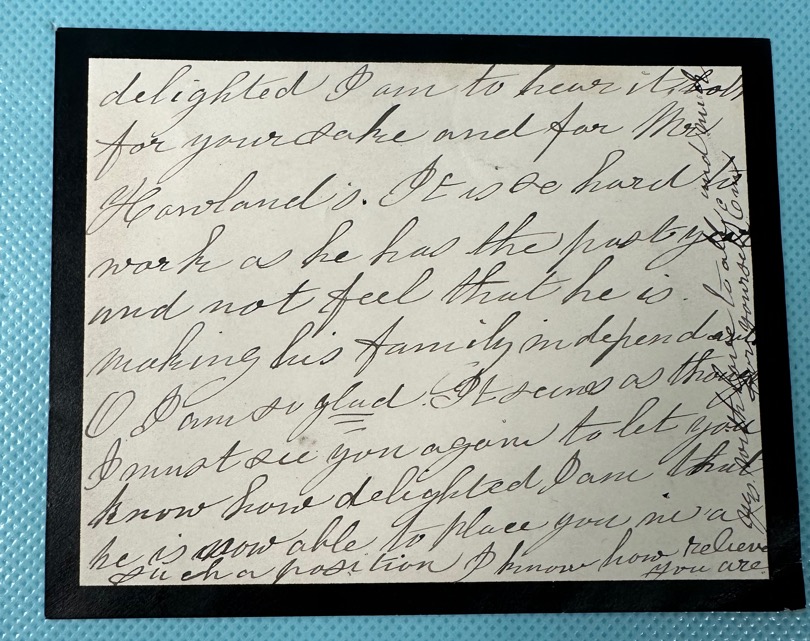 delighted I am to hear it, both
for your sake and for Mr
Howland's. It is so hard to
work as he has the past year
and not feel that he is
making his family independent
O I am so glad. It seems as though
I must see you again to let you
know how delighted I am that
he is now able to place you in a
such a position I know how relieved
you are.
with love to all and much
for yourself